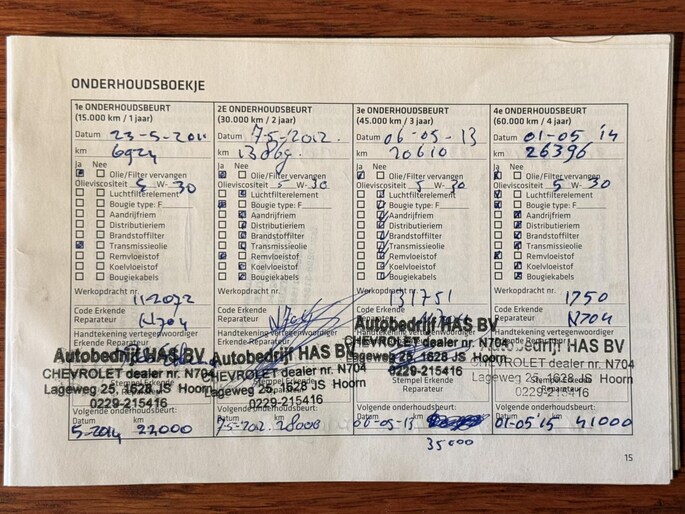 ONDERHOUDSBOEKJE
1e ONDERHOUDSBEURT
(15.000 km / 1 jaar)
Datum 23-5-2011
km 6924
Ja Nee
Olie/Filter vervangen
Olieviscositeit 5 W- 30
Luchtfilterelement
Bougie type: F
Aandrijfriem
Distributieriem
Brandstoffilter
Transmissieolie
Remvloeistof
Koelvloeistof
Bougiekabels
Werkopdracht nr.
112072
Code Erkende
Reparateur N704
Handtekening vertegenwoordiger
Erkende Reparateur
Autobedrijf HAS BV
CHEVROLET dealer nr. N704
Lageweg 25, 1628 JS Hoorn
0229-215416
Volgende onderhoudsbeurt:
Datum km
22000
2E ONDERHOUDSBEURT
(30.000 km / 2 jaar)
Datum 7-5-2012.
km 13869.
Ja Nee
Olie/Filter vervangen
Olieviscositeit 5 W- 30
Luchtfilterelement
Bougie type: F
Aandrijfriem
Distributieriem
Brandstoffilter
Transmissieolie
Remvloeistof
Koelvloeistof
Bougiekabels
Werkopdracht nr.
Code Erkende
Reparateur
Handtekening vertegenwoordiger
Erkende Reparateur
Autobedrijf HAS BV
CHEVROLET dealer nr. N704
Lageweg 25, 1628 JS Hoorn
0229-215416
Volgende onderhoudsbeurt:
Datum km
28000
3e ONDERHOUDSBEURT
(45.000 km / 3 jaar)
Datum 06-05-13
km 20610
Ja Nee
Olie/Filter vervangen
Olieviscositeit 5 W- 30
Luchtfilterelement
Bougie type: F
Aandrijfriem
Distributieriem
Brandstoffilter
Transmissieolie
Remvloeistof
Koelvloeistof
Bougiekabels
Werkopdracht nr.
131751
Code Erkende
Reparateur
Autobedrijf HAS BV
CHEVROLET dealer nr. N704
Lageweg 25, 1628 JS Hoorn
0229-215416
Stempel Erkende
Reparateur
Volgende onderhoudsbeurt:
Datum km
06-05-13
35000
4e ONDERHOUDSBEURT
(60.000 km / 4 jaar)
Datum 01-05 '14
km 26396
Ja Nee
Olie/Filter vervangen
Olieviscositeit 5 W- 30
Luchtfilterelement
Bougie type: F
Aandrijfriem
Distributieriem
Brandstoffilter
Transmissieolie
Remvloeistof
Koelvloeistof
Bougiekabels
Werkopdracht nr.
1750
Code Erkende
Reparateur N704
Handtekening vertegenwoordiger
Erkende Reparateur
Autobedrijf HAS BV
CHEVROLET dealer nr. N704
Lageweg 25, 1628 JS Hoorn
0229-215416
Stempel Erkende
Reparateur
Volgende onderhoudsbeurt:
Datum km
01-05'15 41000
15